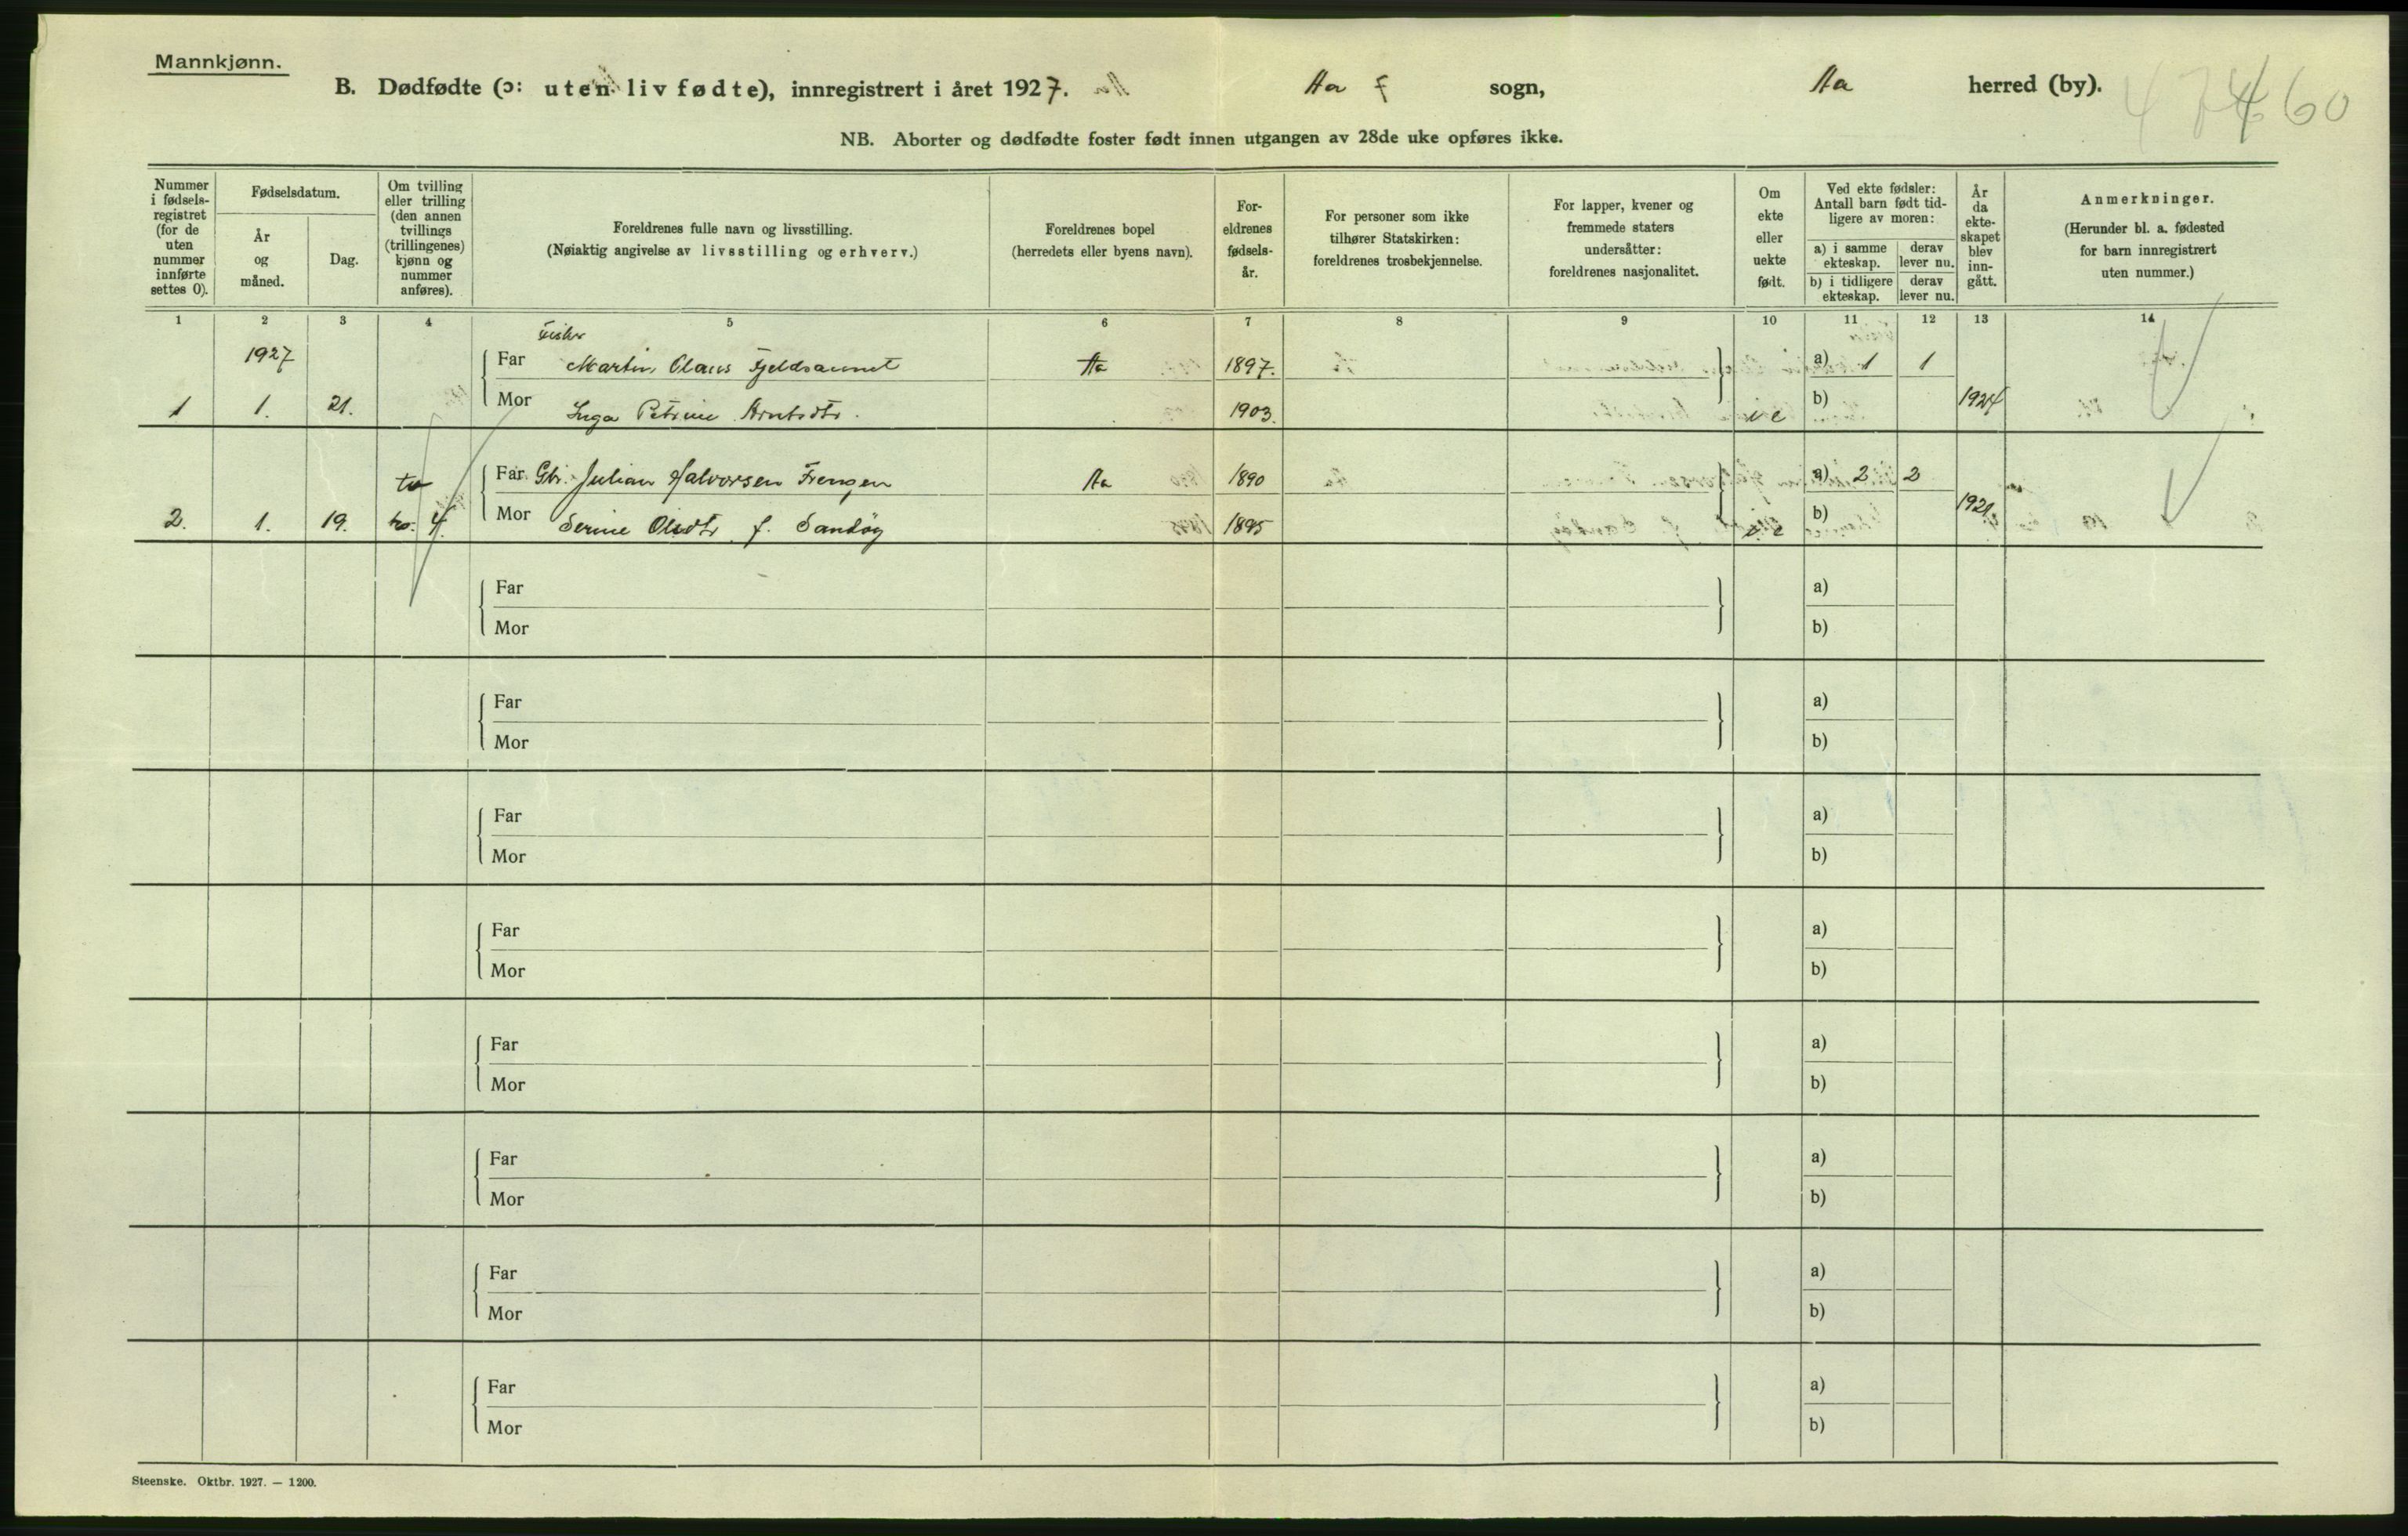 Mannkjønn.
B. Dødfødte (ɔ: uten liv fødte), innregistrert i året 1927. Aa f sogn, Aa herred (by).
460
NB. Aborter og dødfødte foster født innen utgangen av 28de uke opføres ikke.
Nummer i fødsels-registret (for de uten nummer innførte settes 0).
Fødselsdatum.
År og måned.
Dag.
Om tvilling eller trilling (den annen tvillings (trillingenes) kjønn og nummer anføres).
Foreldrenes fulle navn og livsstilling.
(Nøiaktig angivelse av livsstilling og erhverv.)
Foreldrenes bopel
(herredets eller byens navn).
For-eldrenes fødsels-år.
For personer som ikke tilhører Statskirken: foreldrenes trosbekjennelse.
For lapper, kvener og fremmede staters undersåtter: foreldrenes nasjonalitet.
Om ekte eller uekte født.
Ved ekte fødsler: Antall barn født tid-ligere av moren:
a) i samme ekteskap.
derav lever nu.
b) i tidligere ekteskap.
derav lever nu.
År da ekte-skapet blev inn-gått.
Anmerkninger.
(Herunder bl. a. fødested for barn innregistrert uten nummer.)
1 2 3 4 5 6 7 8 9 10 11 12 13 14
Fisker
1927 Far Martin Olaus Fjeldsaunet Aa 1897. a) 1 1
1 1. 21. Mor Inga Petrine Arntsdtr. 1903. e b) 1924
tv Far Gbr. Julian Halvorsen Frengen Aa 1890 a) 2 2
2. 1. 19. no. 4. Mor Serine Olsdtr f. Sandøy 1895 e b) 1921
Far a)
Mor b)
Far a)
Mor b)
Far a)
Mor b)
Far a)
Mor b)
Far a)
Mor b)
Far a)
Mor b)
Far a)
Mor b)
Far a)
Mor b)
Steenske. Oktbr. 1927. — 1200.